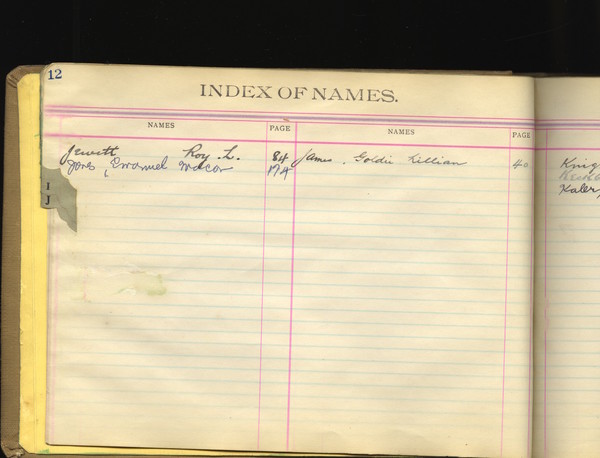 12
INDEX OF NAMES.
NAMES PAGE NAMES PAGE
Jewett Roy L. 84 James, Goldie Lillian 40
Jones, Emanuel Macon 174
I
J
Knig
Kaler,